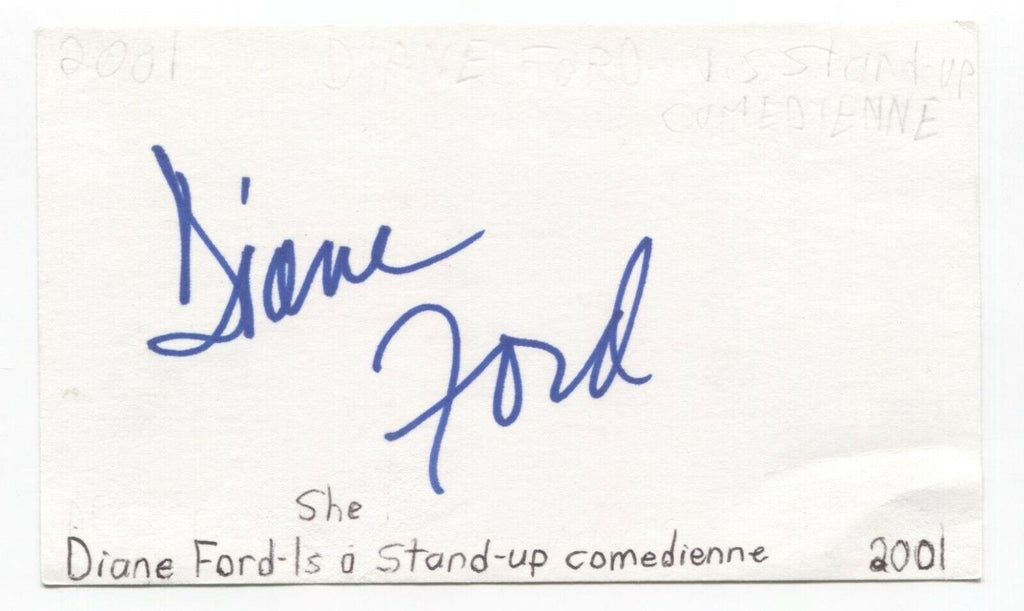 2001 DIANE FORD Is Stand-up
COMEDIENNE
Diane
Ford
She
Diane Ford-Is a Stand-up comedienne 2001